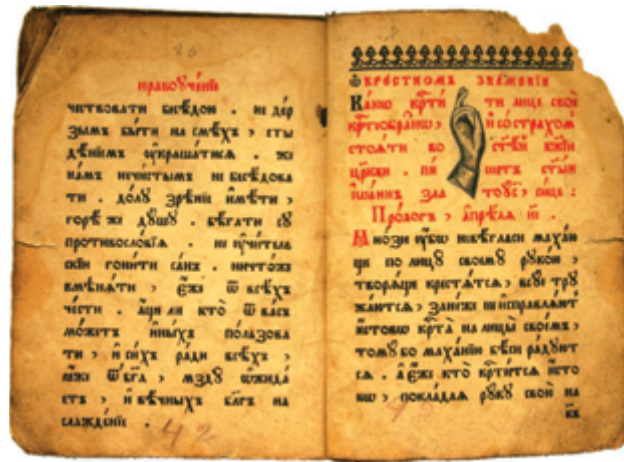 26
нравоꙋче́нїе
чествовати бесѣдою . не дер
зымъ быти на смѣхъ , сты
дѣнїемъ ᲂукрашатися . же
намъ нечистымъ не бесѣдова
ти . долꙋ зрѣнїе имѣти ,
горѣ же дꙋшꙋ . бѣгати сꙋ
противословїя . не ᲂучитель
скїи гонити санъ . ничтоже
вмѣняти , еже ѿ всѣхъ
чести . аще ли кто ѿ васъ
можетъ иныхъ ползова
ти , и сихъ ради всѣхъ ,
ꙗже ѿ бг҃а , мздꙋ ѡжида
етъ , и вѣчныхъ бл҃гъ на
слаждѣнїе .
42
ѡ крестномъ знаменїи
Како крⷭ҇ти ти лице свое
крⷭ҇тоѡбразно , и со страхом
стояти во ст҃ѣй бж҃їи
цр҃кви . пи шетъ ст҃ый
іѡаннъ зла тоꙋс , сице :
Прологъ , апреля ні .
Мнози ᲂубо невѣгласи махаю
ще по лицꙋ своемꙋ рꙋкою ,
творяще крестятся , всꙋе трꙋ
жаются , занеже не исправляют
истово крⷭ҇та на лицы своемъ ,
томꙋ бо маханїю бѣси радꙋют
ся . а еже кто крⷭ҇тится исто
во , покладая рꙋкꙋ свою на